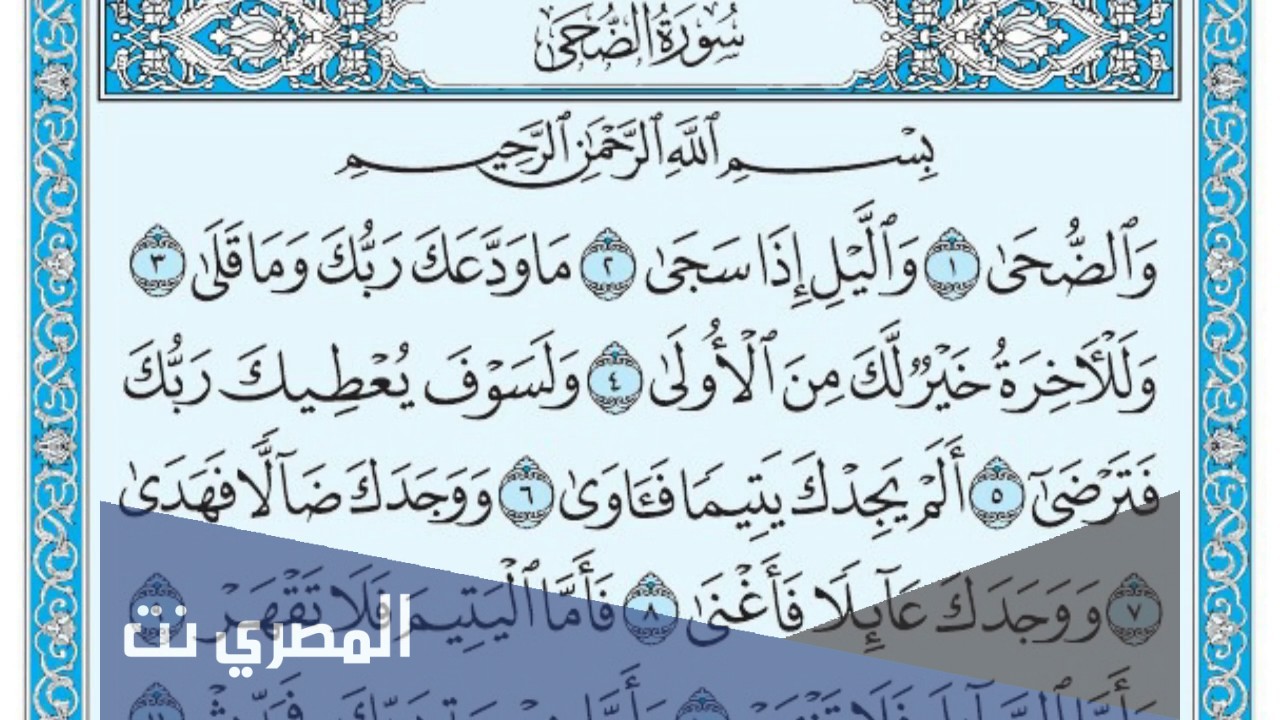 سُورَةُ الضُّحَى
بِسْمِ ٱللَّهِ ٱلرَّحْمَٰنِ ٱلرَّحِيمِ
وَٱلضُّحَىٰ ١ وَٱلَّيْلِ إِذَا سَجَىٰ ٢ مَا وَدَّعَكَ رَبُّكَ وَمَا قَلَىٰ ٣
وَلَلْأَخِرَةُ خَيْرٌ لَّكَ مِنَ ٱلْأُولَىٰ ٤ وَلَسَوْفَ يُعْطِيكَ رَبُّكَ
فَتَرْضَىٰٓ ٥ أَلَمْ يَجِدْكَ يَتِيمًا فَـَٔاوَىٰ ٦ وَوَجَدَكَ ضَآلًّا فَهَدَىٰ
٧ وَوَجَدَكَ عَآئِلًا فَأَغْنَىٰ ٨ فَأَمَّا ٱلْيَتِيمَ فَلَا تَقْهَرْ ٩
المصري نت